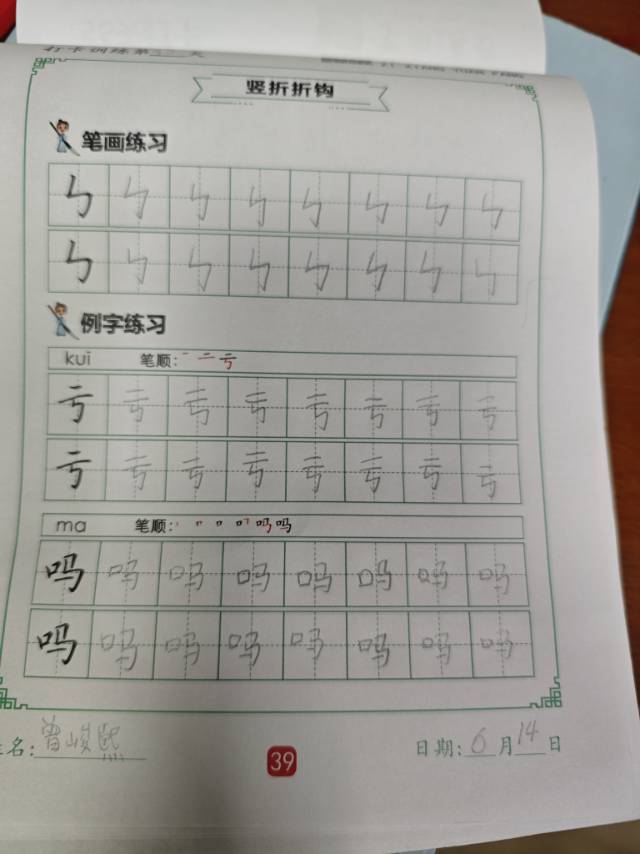 竖折折钩
笔画练习
ㄣ ㄣ ㄣ ㄣ ㄣ ㄣ ㄣ ㄣ
ㄣ ㄣ ㄣ ㄣ ㄣ ㄣ ㄣ ㄣ
例字练习
kuī 笔顺: 一 二 亏
亏 亏 亏 亏 亏 亏 亏 亏
亏 亏 亏 亏 亏 亏 亏 亏
ma 笔顺: 吗 吗
吗 吗 吗 吗 吗 吗 吗 吗
吗 吗 吗 吗 吗 吗 吗 吗
姓名: 曾峻熙 39 日期: 6 月 14 日